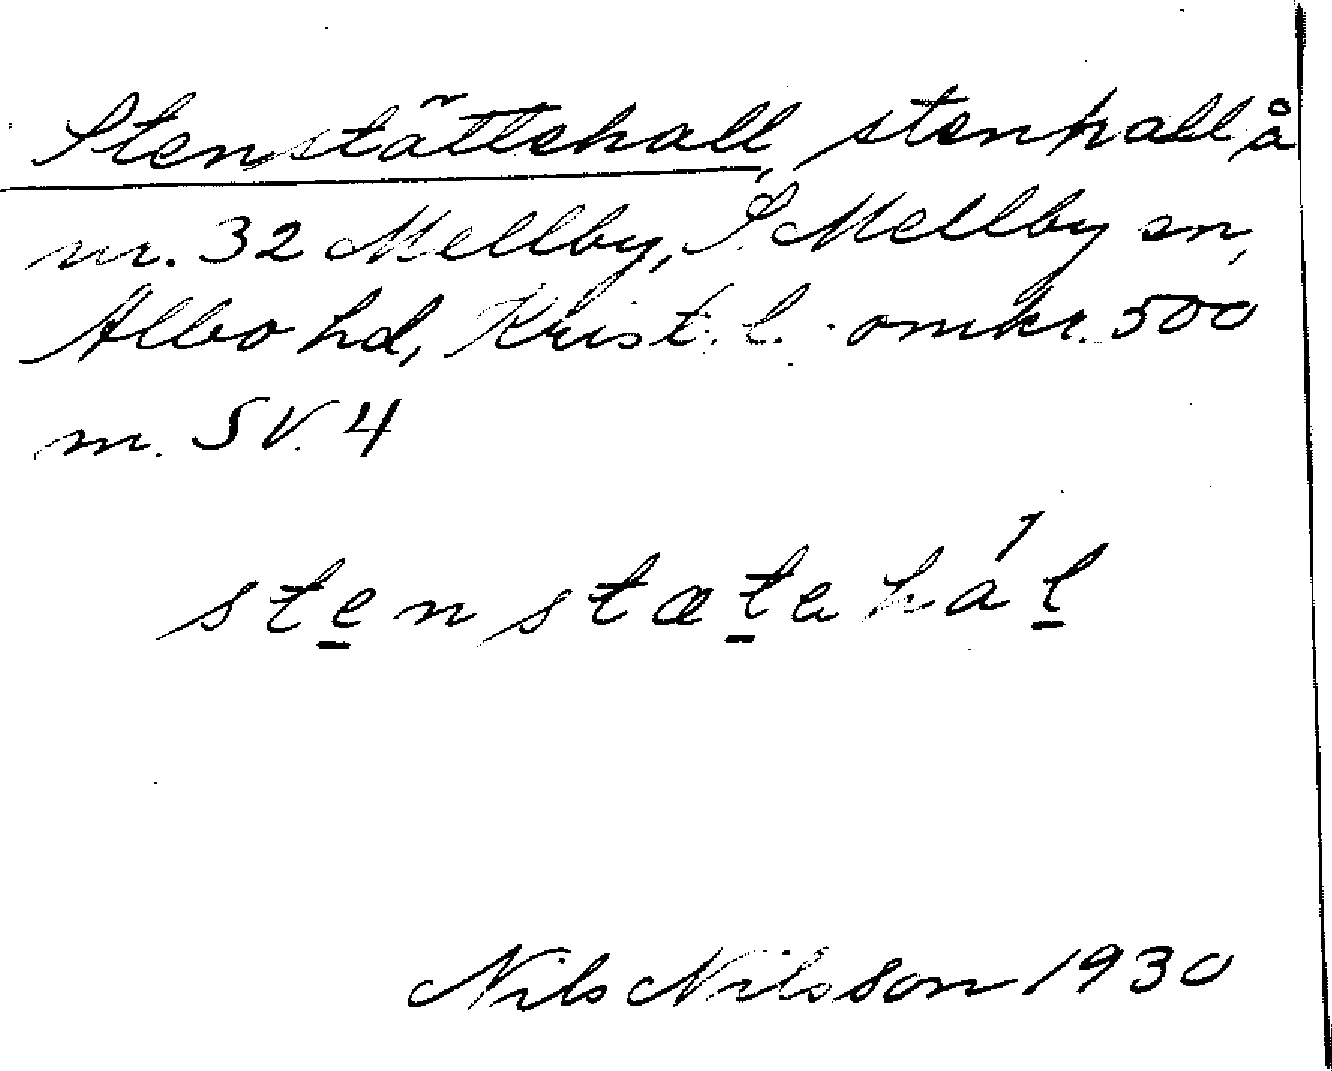 Stenstättehall, stenhall å
nr. 32 Mellby, S. Mellby sn,
Albo hd, Krist. l. omkr. 500
m. SV. 4
stenstætehál
Nils Nilsson 1930